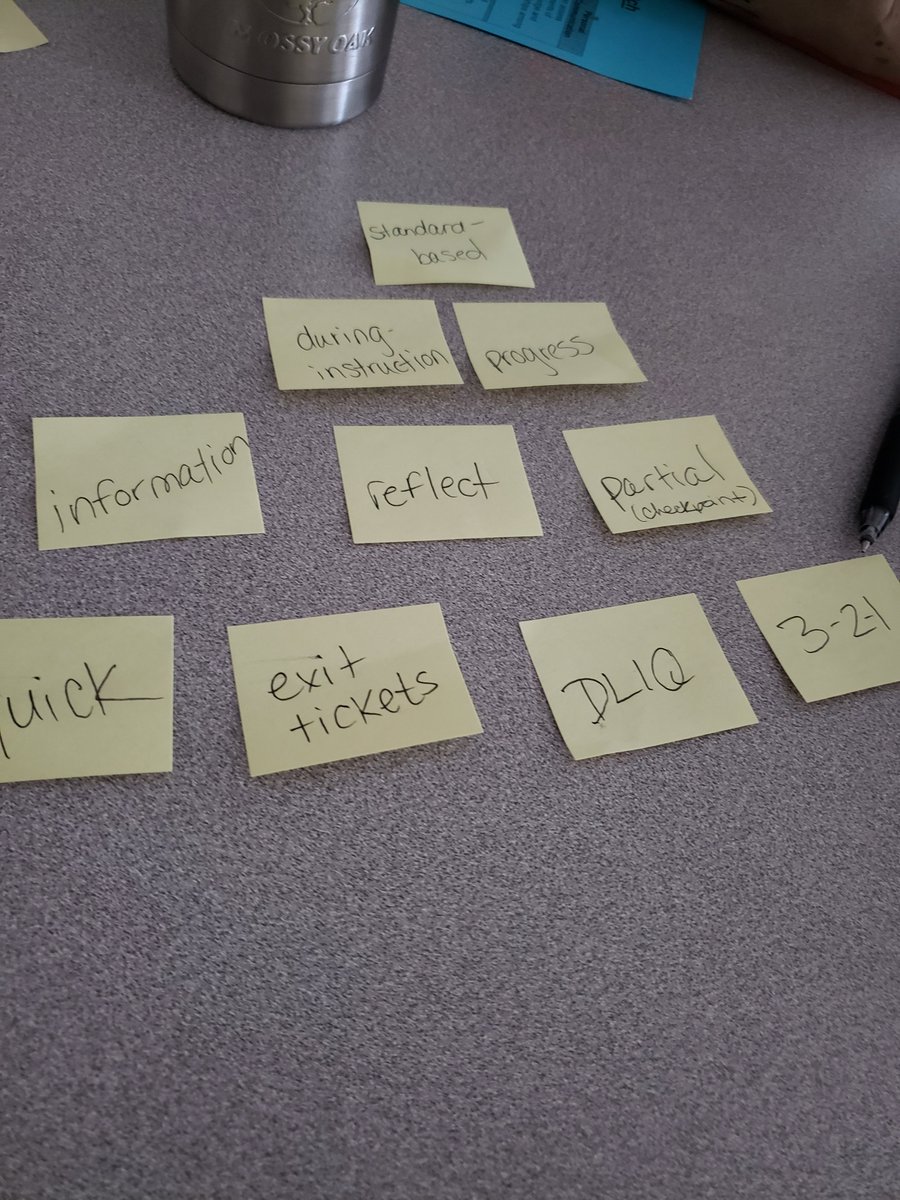 MOSSY OAK
standard-
based
during-
instruction
progress
information
reflect
partial
(checkpoint)
uick
exit
tickets
DLIQ
3-2-1